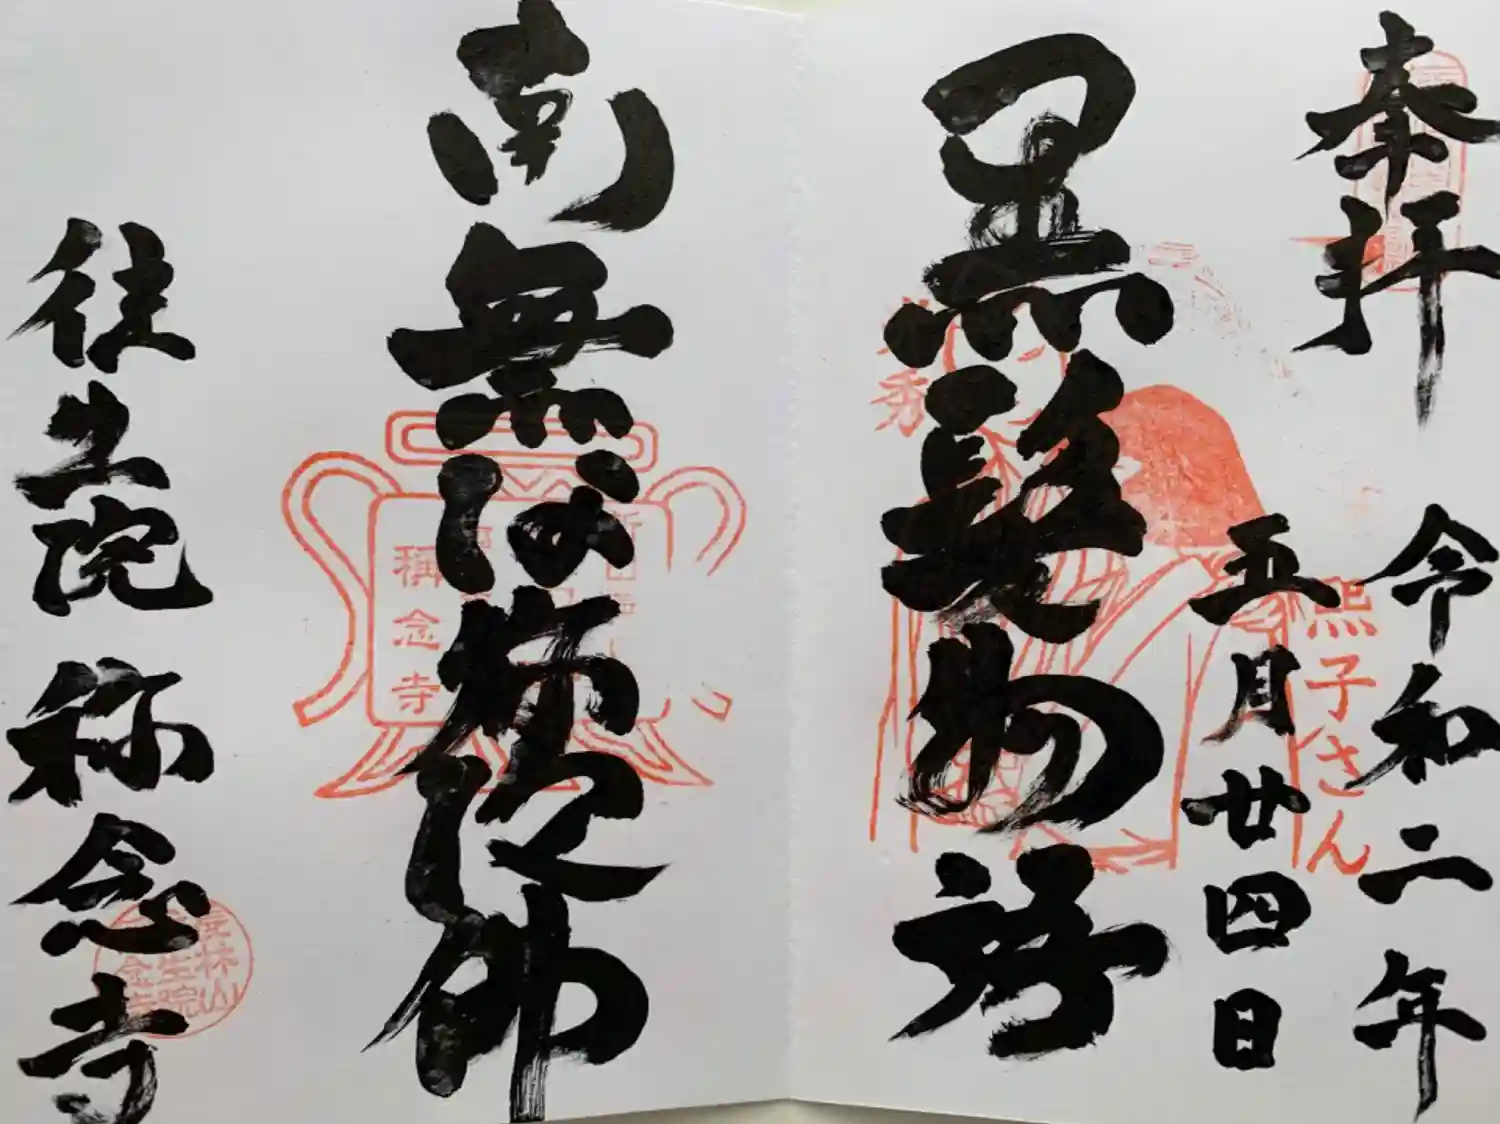 奉拝
令和二年
五月廿四日
黒髪物語
熙子さん
秀
南無阿弥陀仏
稱念寺
往生院 称念寺
長林山
往生院
念寺